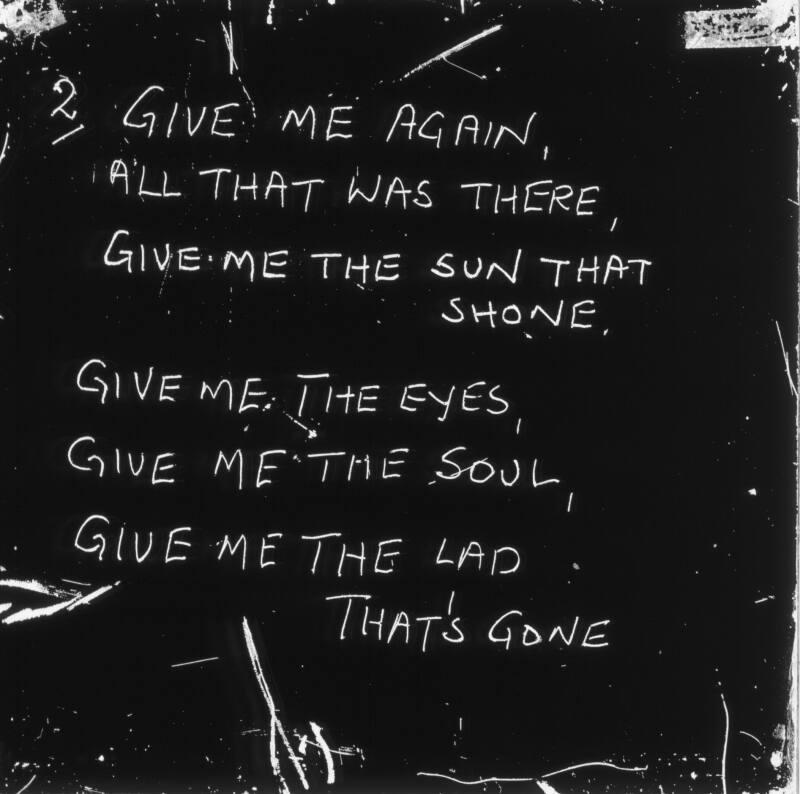 2 GIVE ME AGAIN,
ALL THAT WAS THERE,
GIVE ME THE SUN THAT
SHONE.
GIVE ME THE EYES,
GIVE ME THE SOUL,
GIVE ME THE LAD
THAT'S GONE